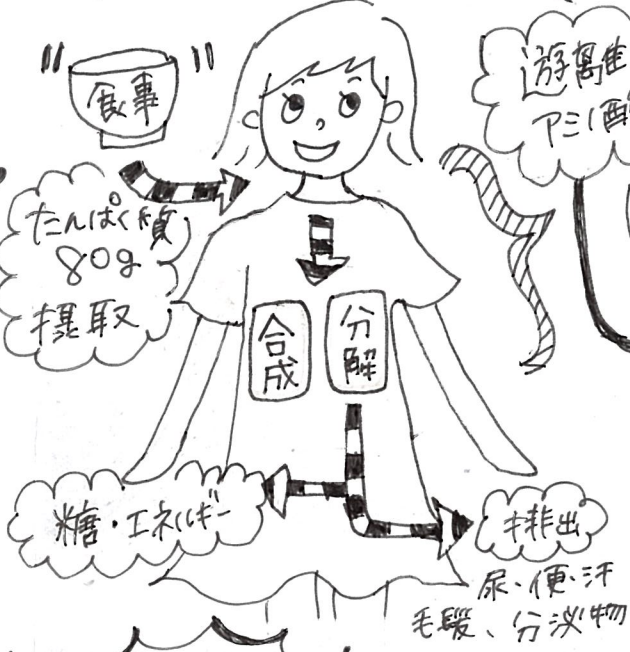 食事
遊離
アミノ酸
たんぱく質
80g
摂取
合成
分解
糖・エネルギー
排出
尿・便・汗
毛髪、分泌物